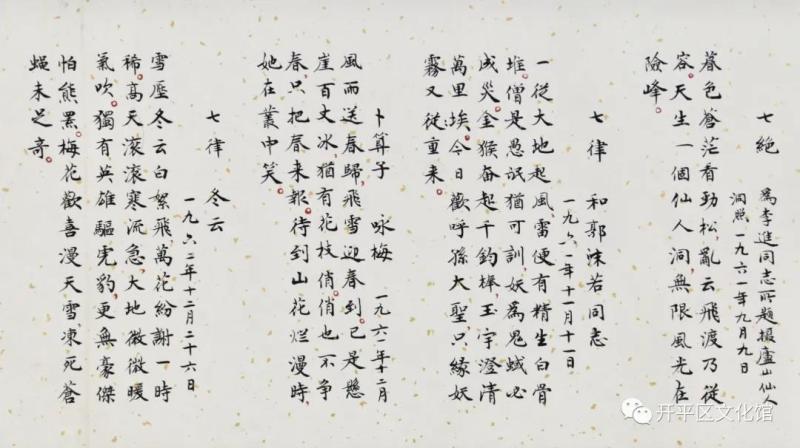 七絶 為李進同志所題摄廬山仙人
洞照 一九六一年九月九日
暮色蒼茫看劲松，亂云飛渡乃從
容。天生一個仙人洞，無限風光在
險峰。
七律 和郭沫若同志
一九六一年十一月十一日
一從大地起風雷，便有精生白骨
堆。僧是愚氓猶可訓，妖為鬼蜮必
成災。金猴奋起千钧棒，玉宇澄清
萬里埃。今日歡呼孫大聖，只緣妖
霧又從重来。
卜算子 咏梅 一九六一年十二月
風雨送春歸，飛雪迎春到。已是懸
崖百丈冰，猶有花枝俏。俏也不争
春，只把春来報。待到山花烂漫時，
她在叢中笑。
七律 冬云
一九六二年十二月二十六日
雪壓冬云白絮飛，萬花紛謝一時
稀。高天滚滚寒流急，大地微微暖
氣吹。獨有英雄驅虎豹，更無豪傑
怕熊羆。梅花歡喜漫天雪，凍死蒼
蝇未足奇。
开平区文化馆